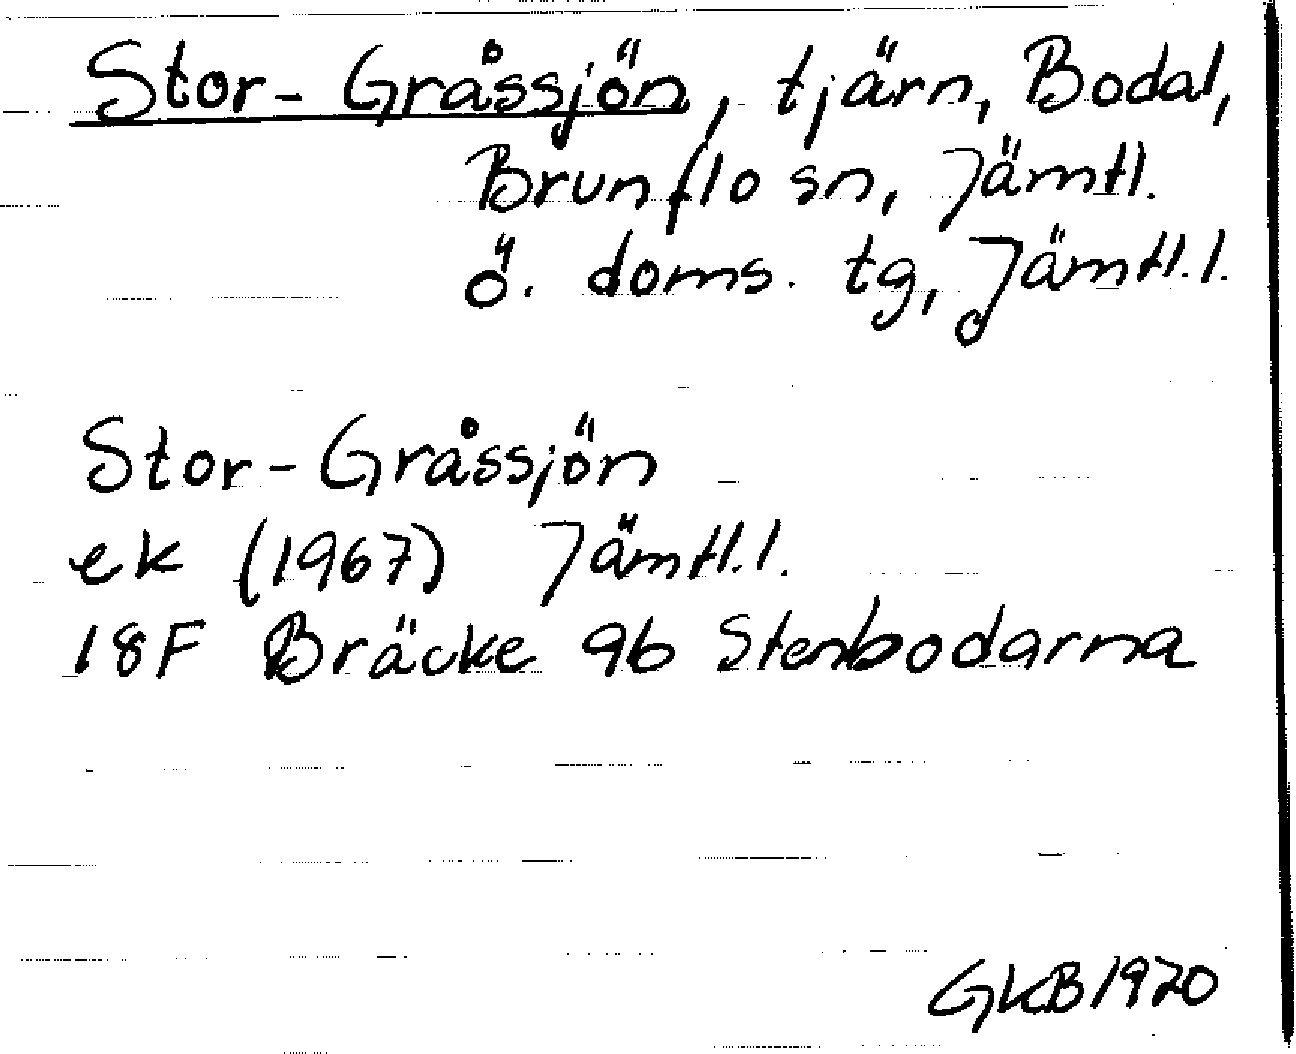 Stor-Gråssjön, tjärn, Bodal,
Brunflo sn, Jämtl.
ö. doms. tg, Jämtl.l.
Stor-Gråssjön
ek (1967) Jämtl.l.
18F Bräcke 9b Stenbodarna
GKB 1970